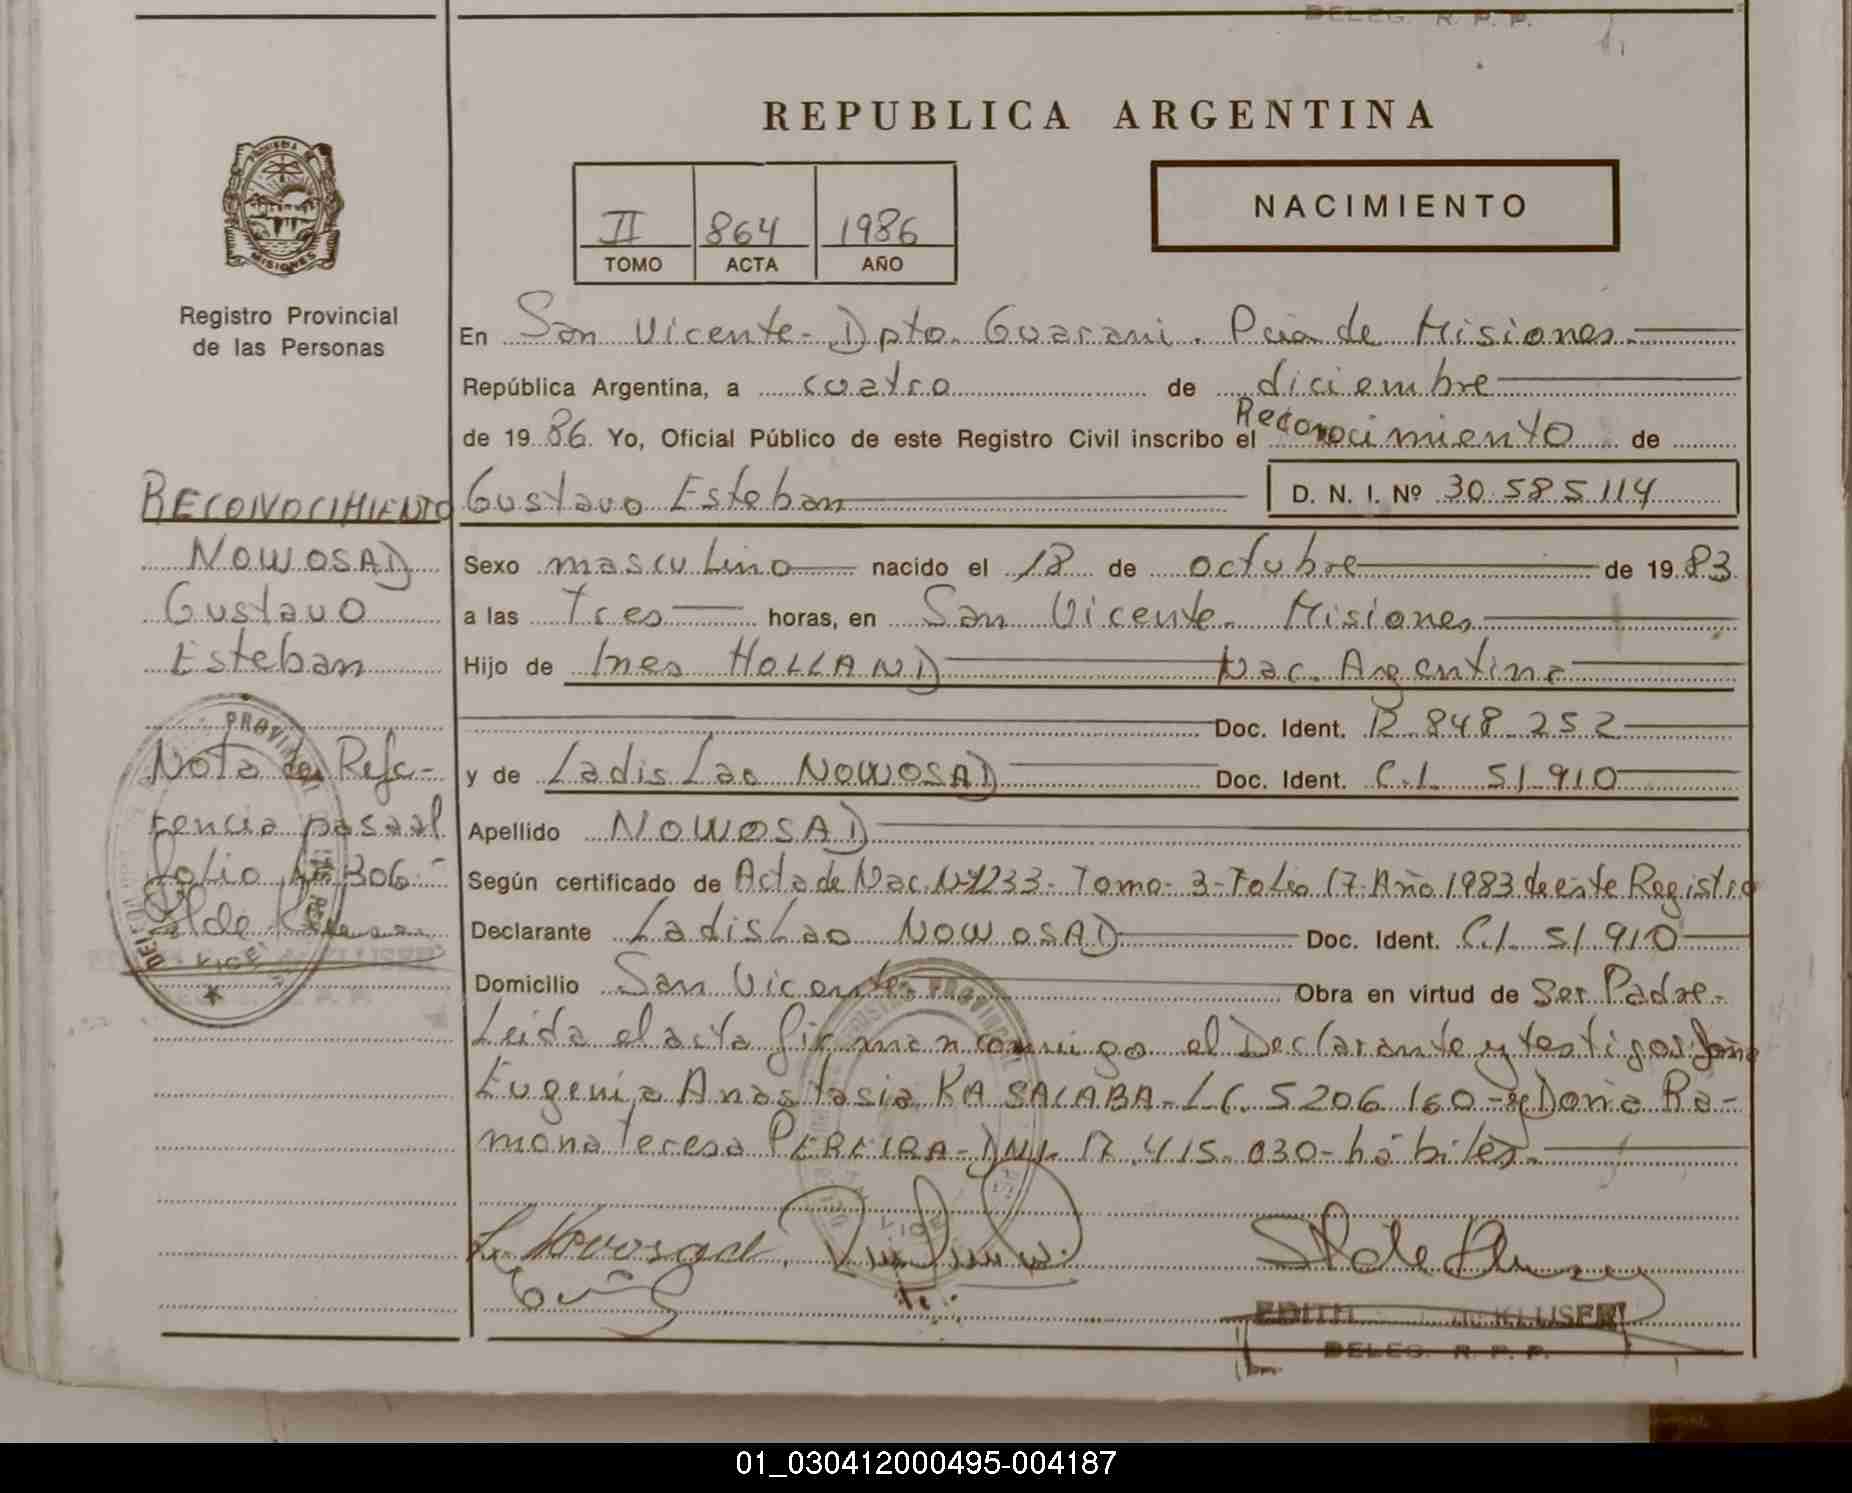 DELEG. R. P. P.
REPUBLICA ARGENTINA
PROVINCIA DE
MISIONES
II 864 1986
TOMO ACTA AÑO
NACIMIENTO
Registro Provincial
de las Personas
En San Vicente- Dpto. Guarani. Pcia de Misiones.
República Argentina, a cuatro de diciembre
de 1986. Yo, Oficial Público de este Registro Civil inscribo el Reconocimiento de
Gustavo Esteban D. N. I. Nº 30.585.114
Sexo masculino nacido el 18 de octubre de 1983
a las Tres horas, en San Vicente. Misiones
Hijo de Ines HOLLAND Nac. Argentina
Doc. Ident. 12.848.252
y de Ladislao NOWOSAD Doc. Ident. C.I. 51.910
Apellido NOWOSAD
Según certificado de Acta de Nac. Nº 1233- Tomo- 3- Folio 17- Año 1983 de este Registro
Declarante Ladislao NOWOSAD Doc. Ident. C.I. 51.910
Domicilio San Vicente Obra en virtud de Ser Padre-
Leida el acta firman conmigo el Declarante y testigos Doña
Eugenia Anastasia KASALABA- LC. 5206.160- y Doña Ra-
mona Teresa PEREIRA- DNI- 17.415.030- hábiles.
RECONOCIMIENTO
NOWOSAD
Gustavo
Esteban
Nota de Refe-
rencia pasa al
folio Nº 306-
L. Novosad
EDITH KLUSER
DELEG. R. P. P.
01_030412000495-004187